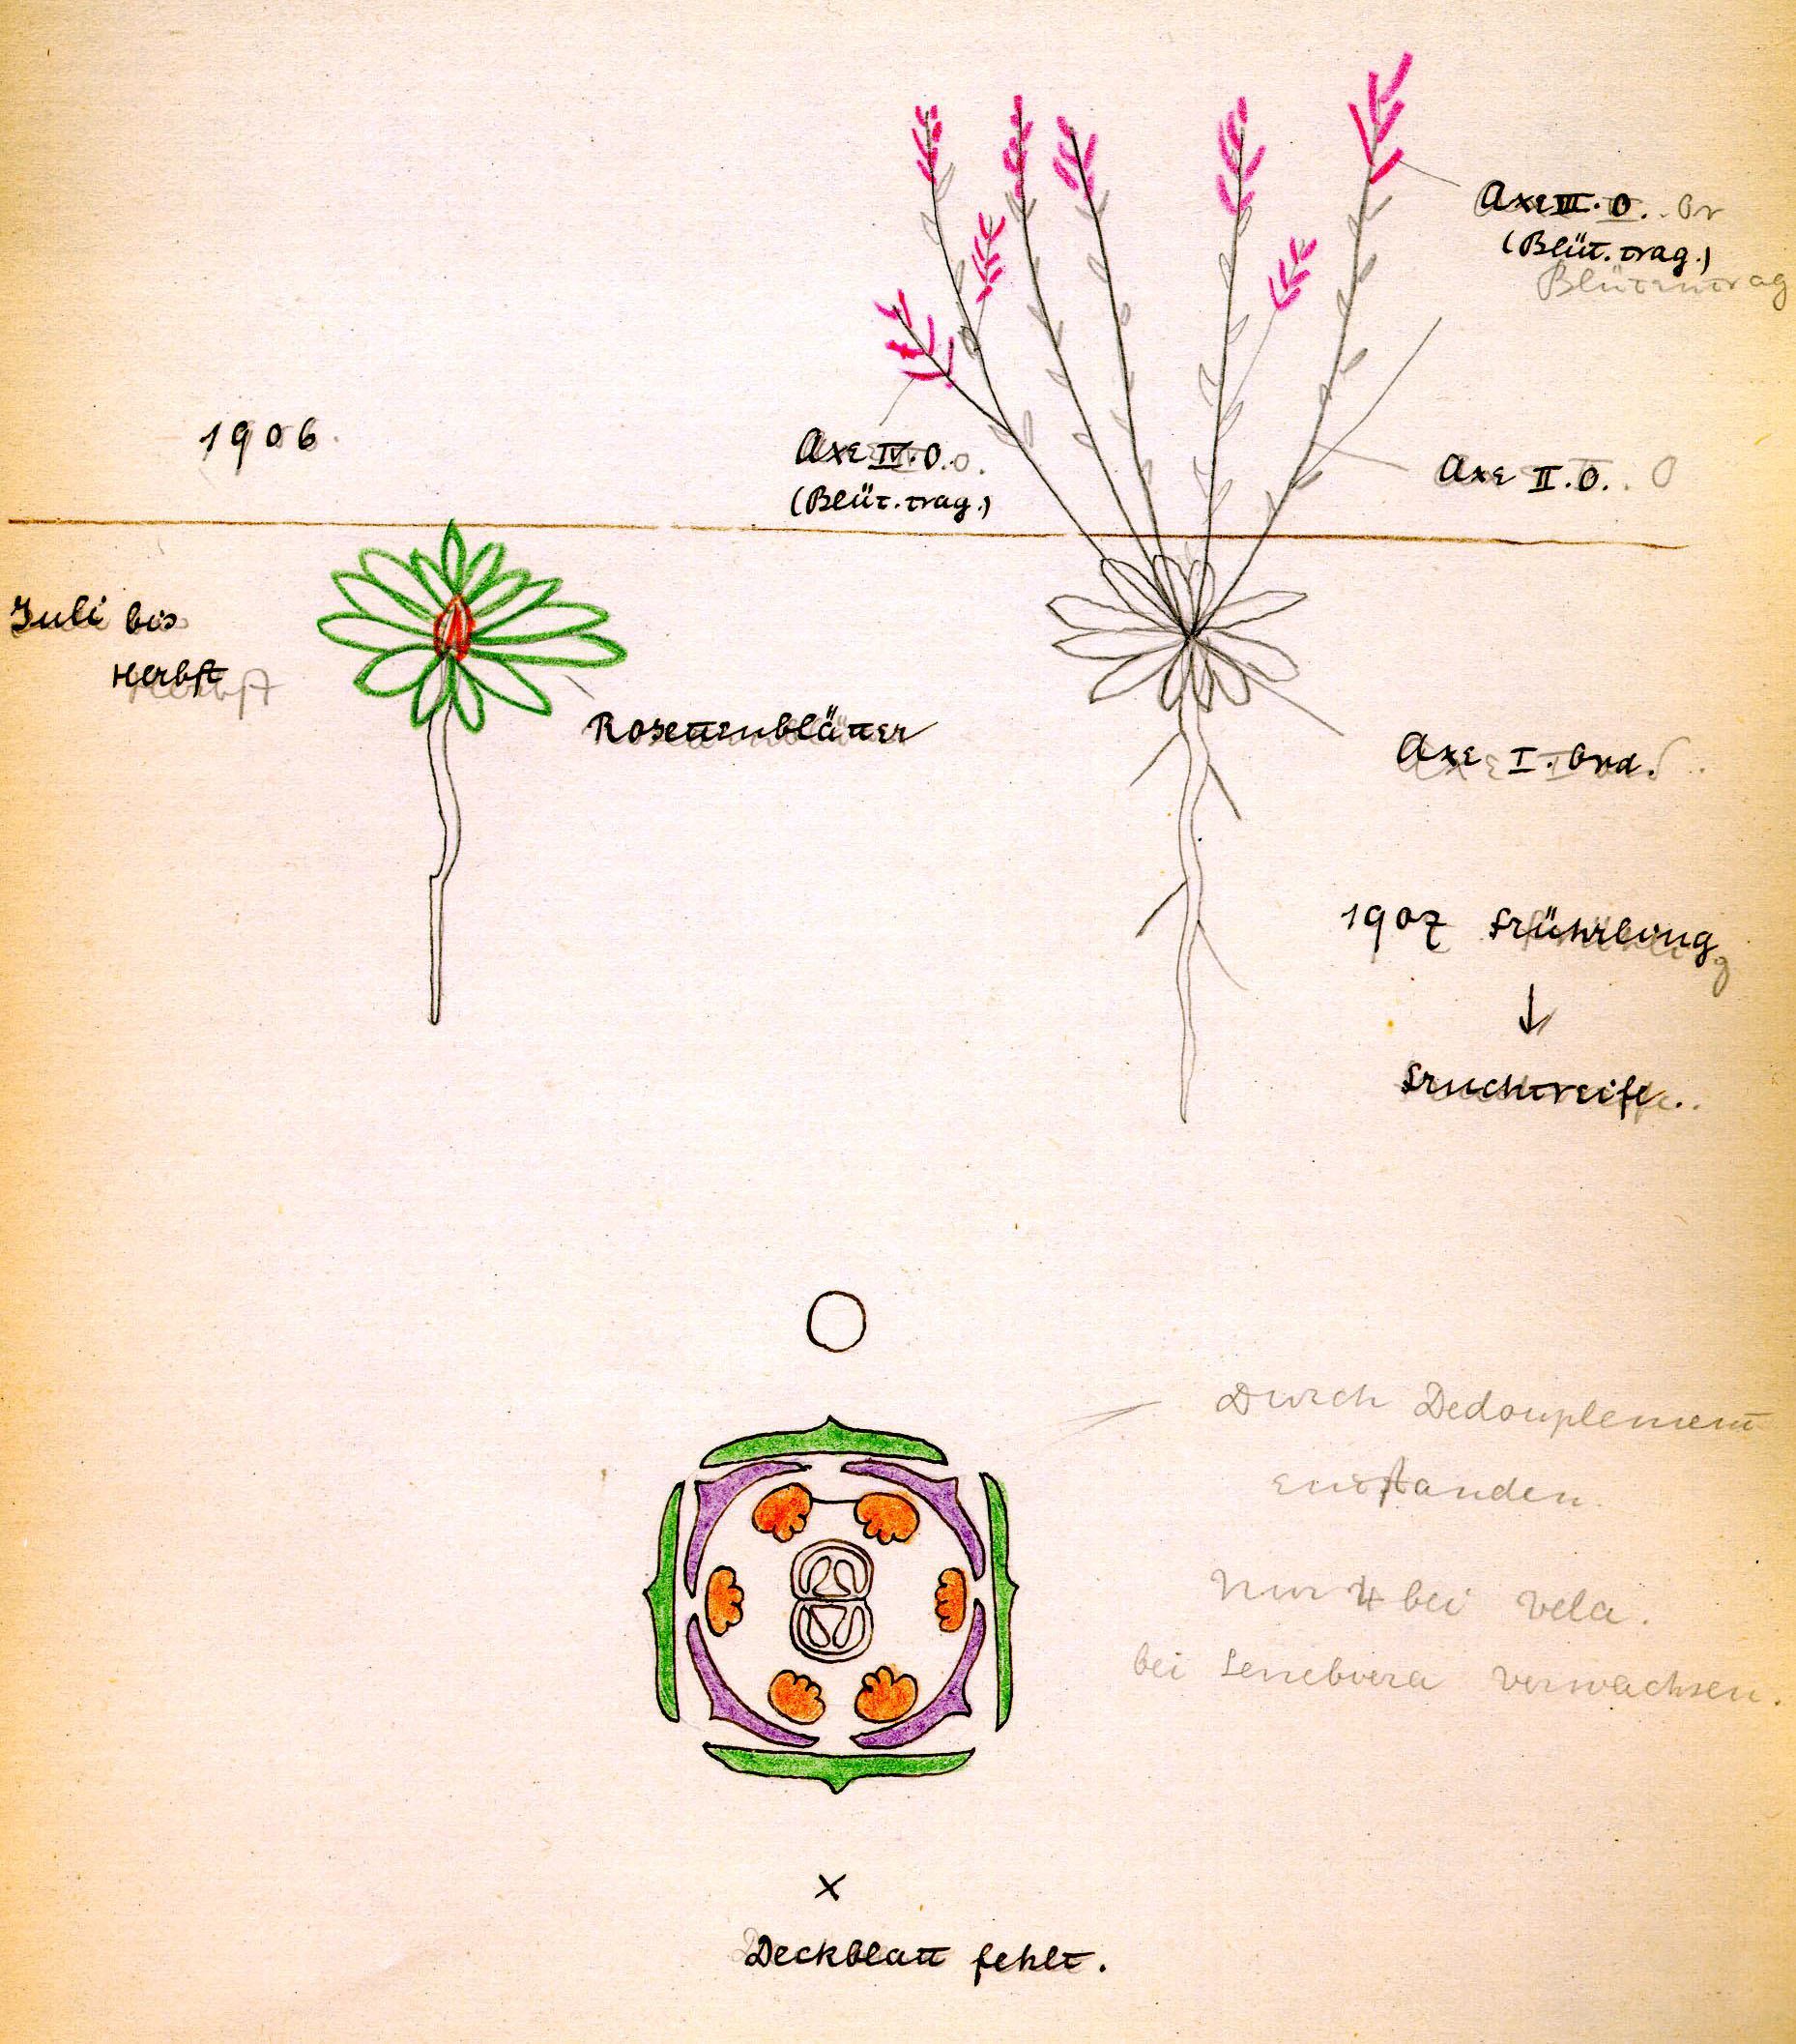 Axe III. O.
(Blüt. trag.)
Blütentrag
1906
Axe IV. O.
(Blüt. trag.)
Axe II. O.
Juli bis
Herbst
Rosettenblätter
Axe I. Ord.
1907 Frühling
↓
Fruchtreife.
Durch Dedouplement
entstanden.
Nur 4 bei Vela.
bei Senebiera verwachsen.
×
Deckblatt fehlt.